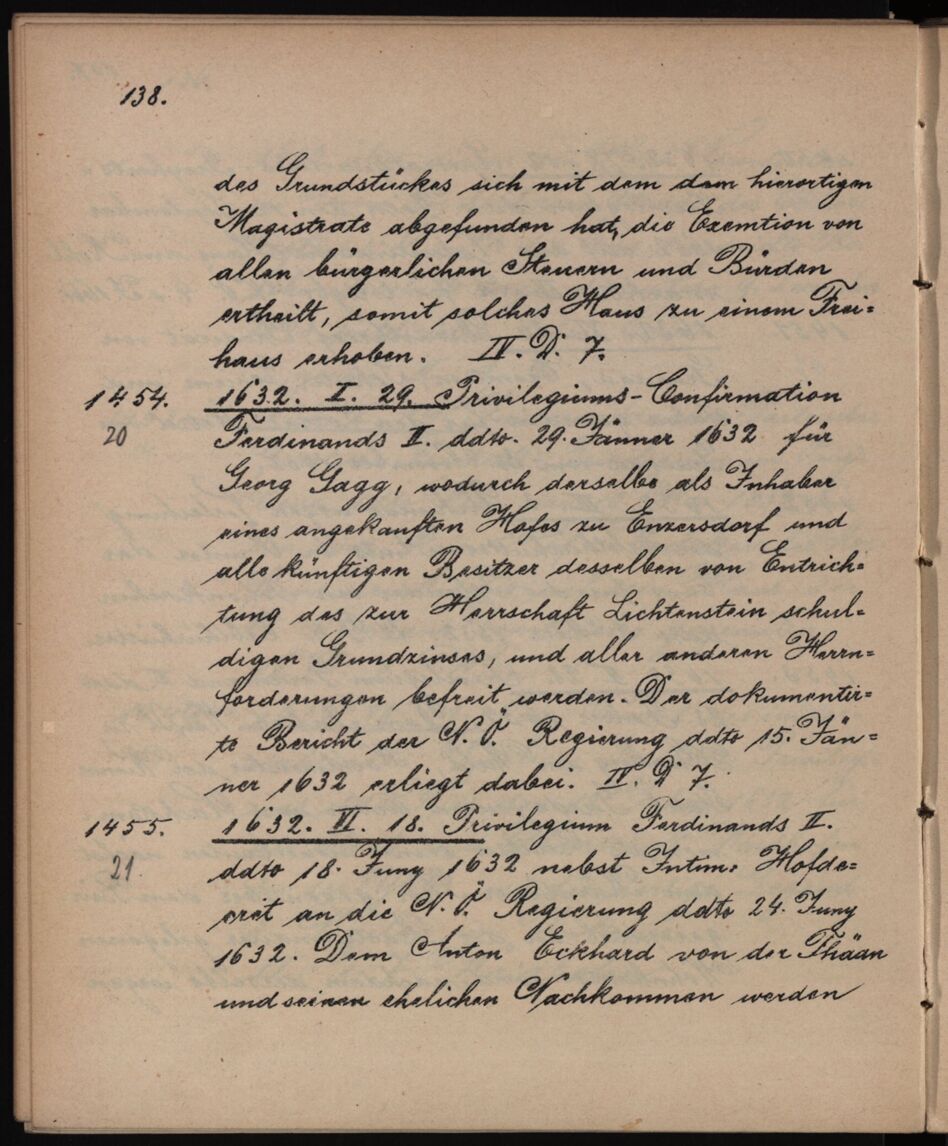 138.
des Grundstückes sich mit dem dem hierortigen
Magistrate abgefunden hat, die Exemtion von
allen bürgerlichen Steuern und Bürden
ertheilt, somit solches Haus zu einem Frei=
haus erhoben. IV. D. 7.
1454. 1632. I. 29. Privilegiums-Confirmation
20 Ferdinands II. ddto. 29. Jänner 1632 für
Georg Gagg, wodurch derselbe als Inhaber
eines angekauften Hofes zu Enzersdorf und
alle künftigen Besitzer desselben von Entrich=
tung des zur Herrschaft Lichtenstein schul=
digen Grundzinses, und aller anderen Herrn=
forderungen befreit werden. Der dokumentir=
te Bericht der N. Ö. Regierung ddto 15. Jän=
ner 1632 erliegt dabei. IV. D 7.
1455. 1632. VI. 18. Privilegium Ferdinands II.
21. ddto 18. Juny 1632 nebst Intim: Hofde=
cret an die N. Ö. Regierung ddto 24. Juny
1632. Dem Anton Eckhard von der Thäan
und seinen ehelichen Nachkommen werden